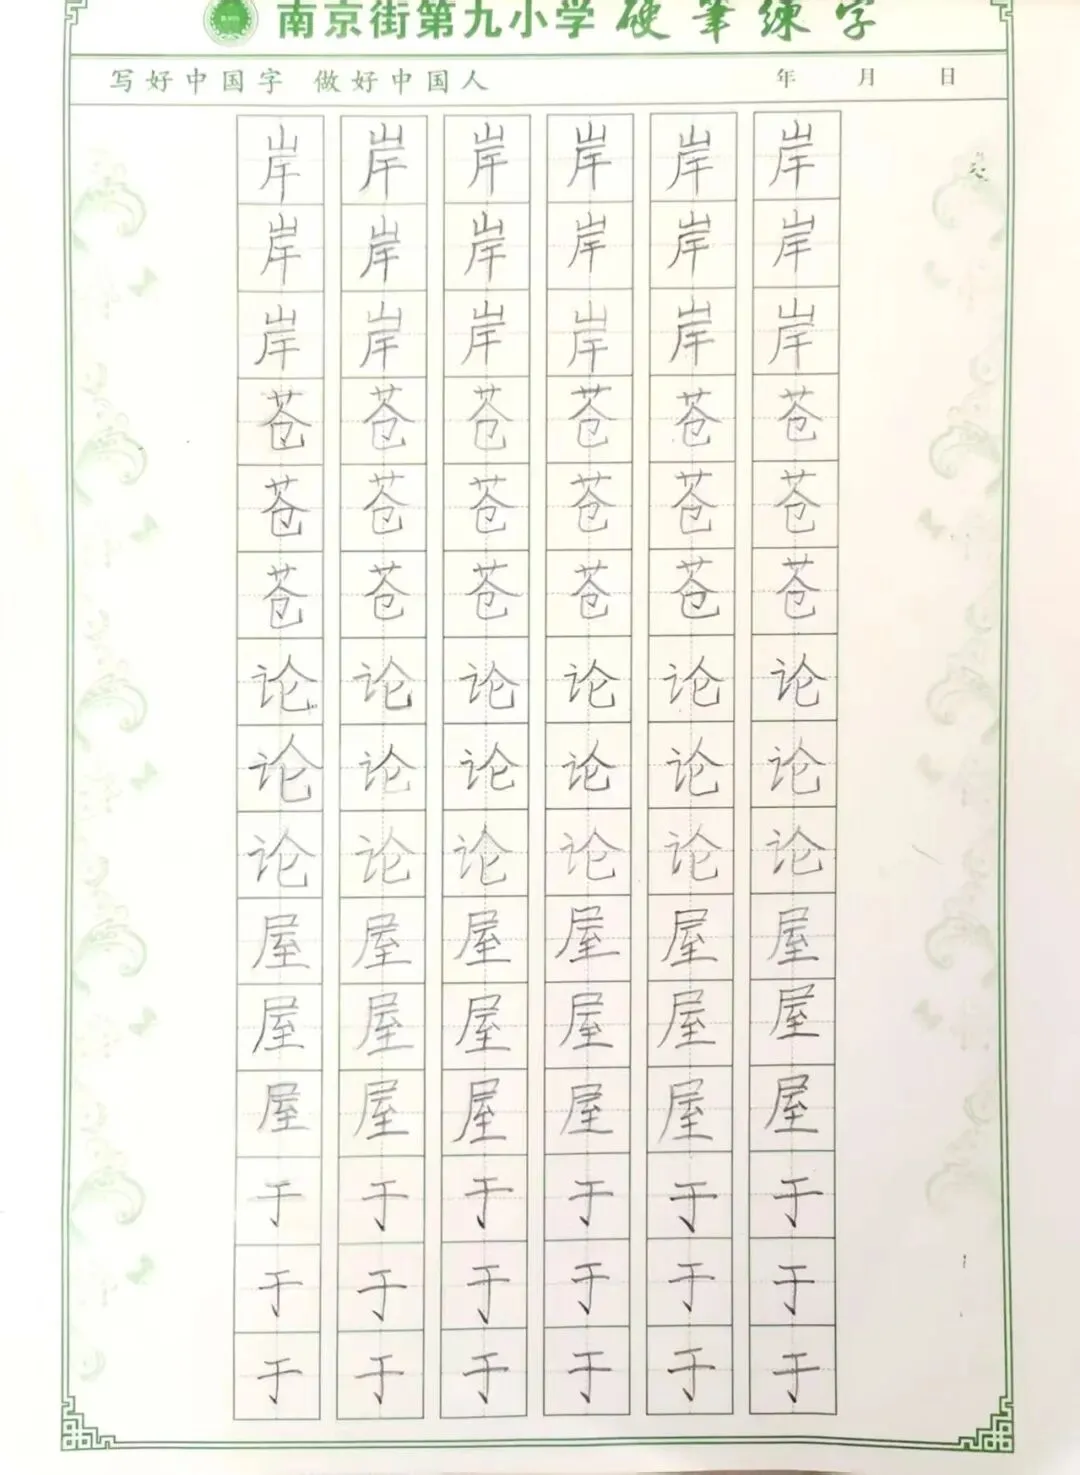 南京街第九小学 硬筆练字
写好中国字 做好中国人 年 月 日
岸岸岸岸岸岸
岸岸岸岸岸岸
岸岸岸岸岸岸
苍苍苍苍苍苍
苍苍苍苍苍苍
苍苍苍苍苍苍
论论论论论论
论论论论论论
论论论论论论
屋屋屋屋屋屋
屋屋屋屋屋屋
屋屋屋屋屋屋
于于于于于于
于于于于于于
于于于于于于